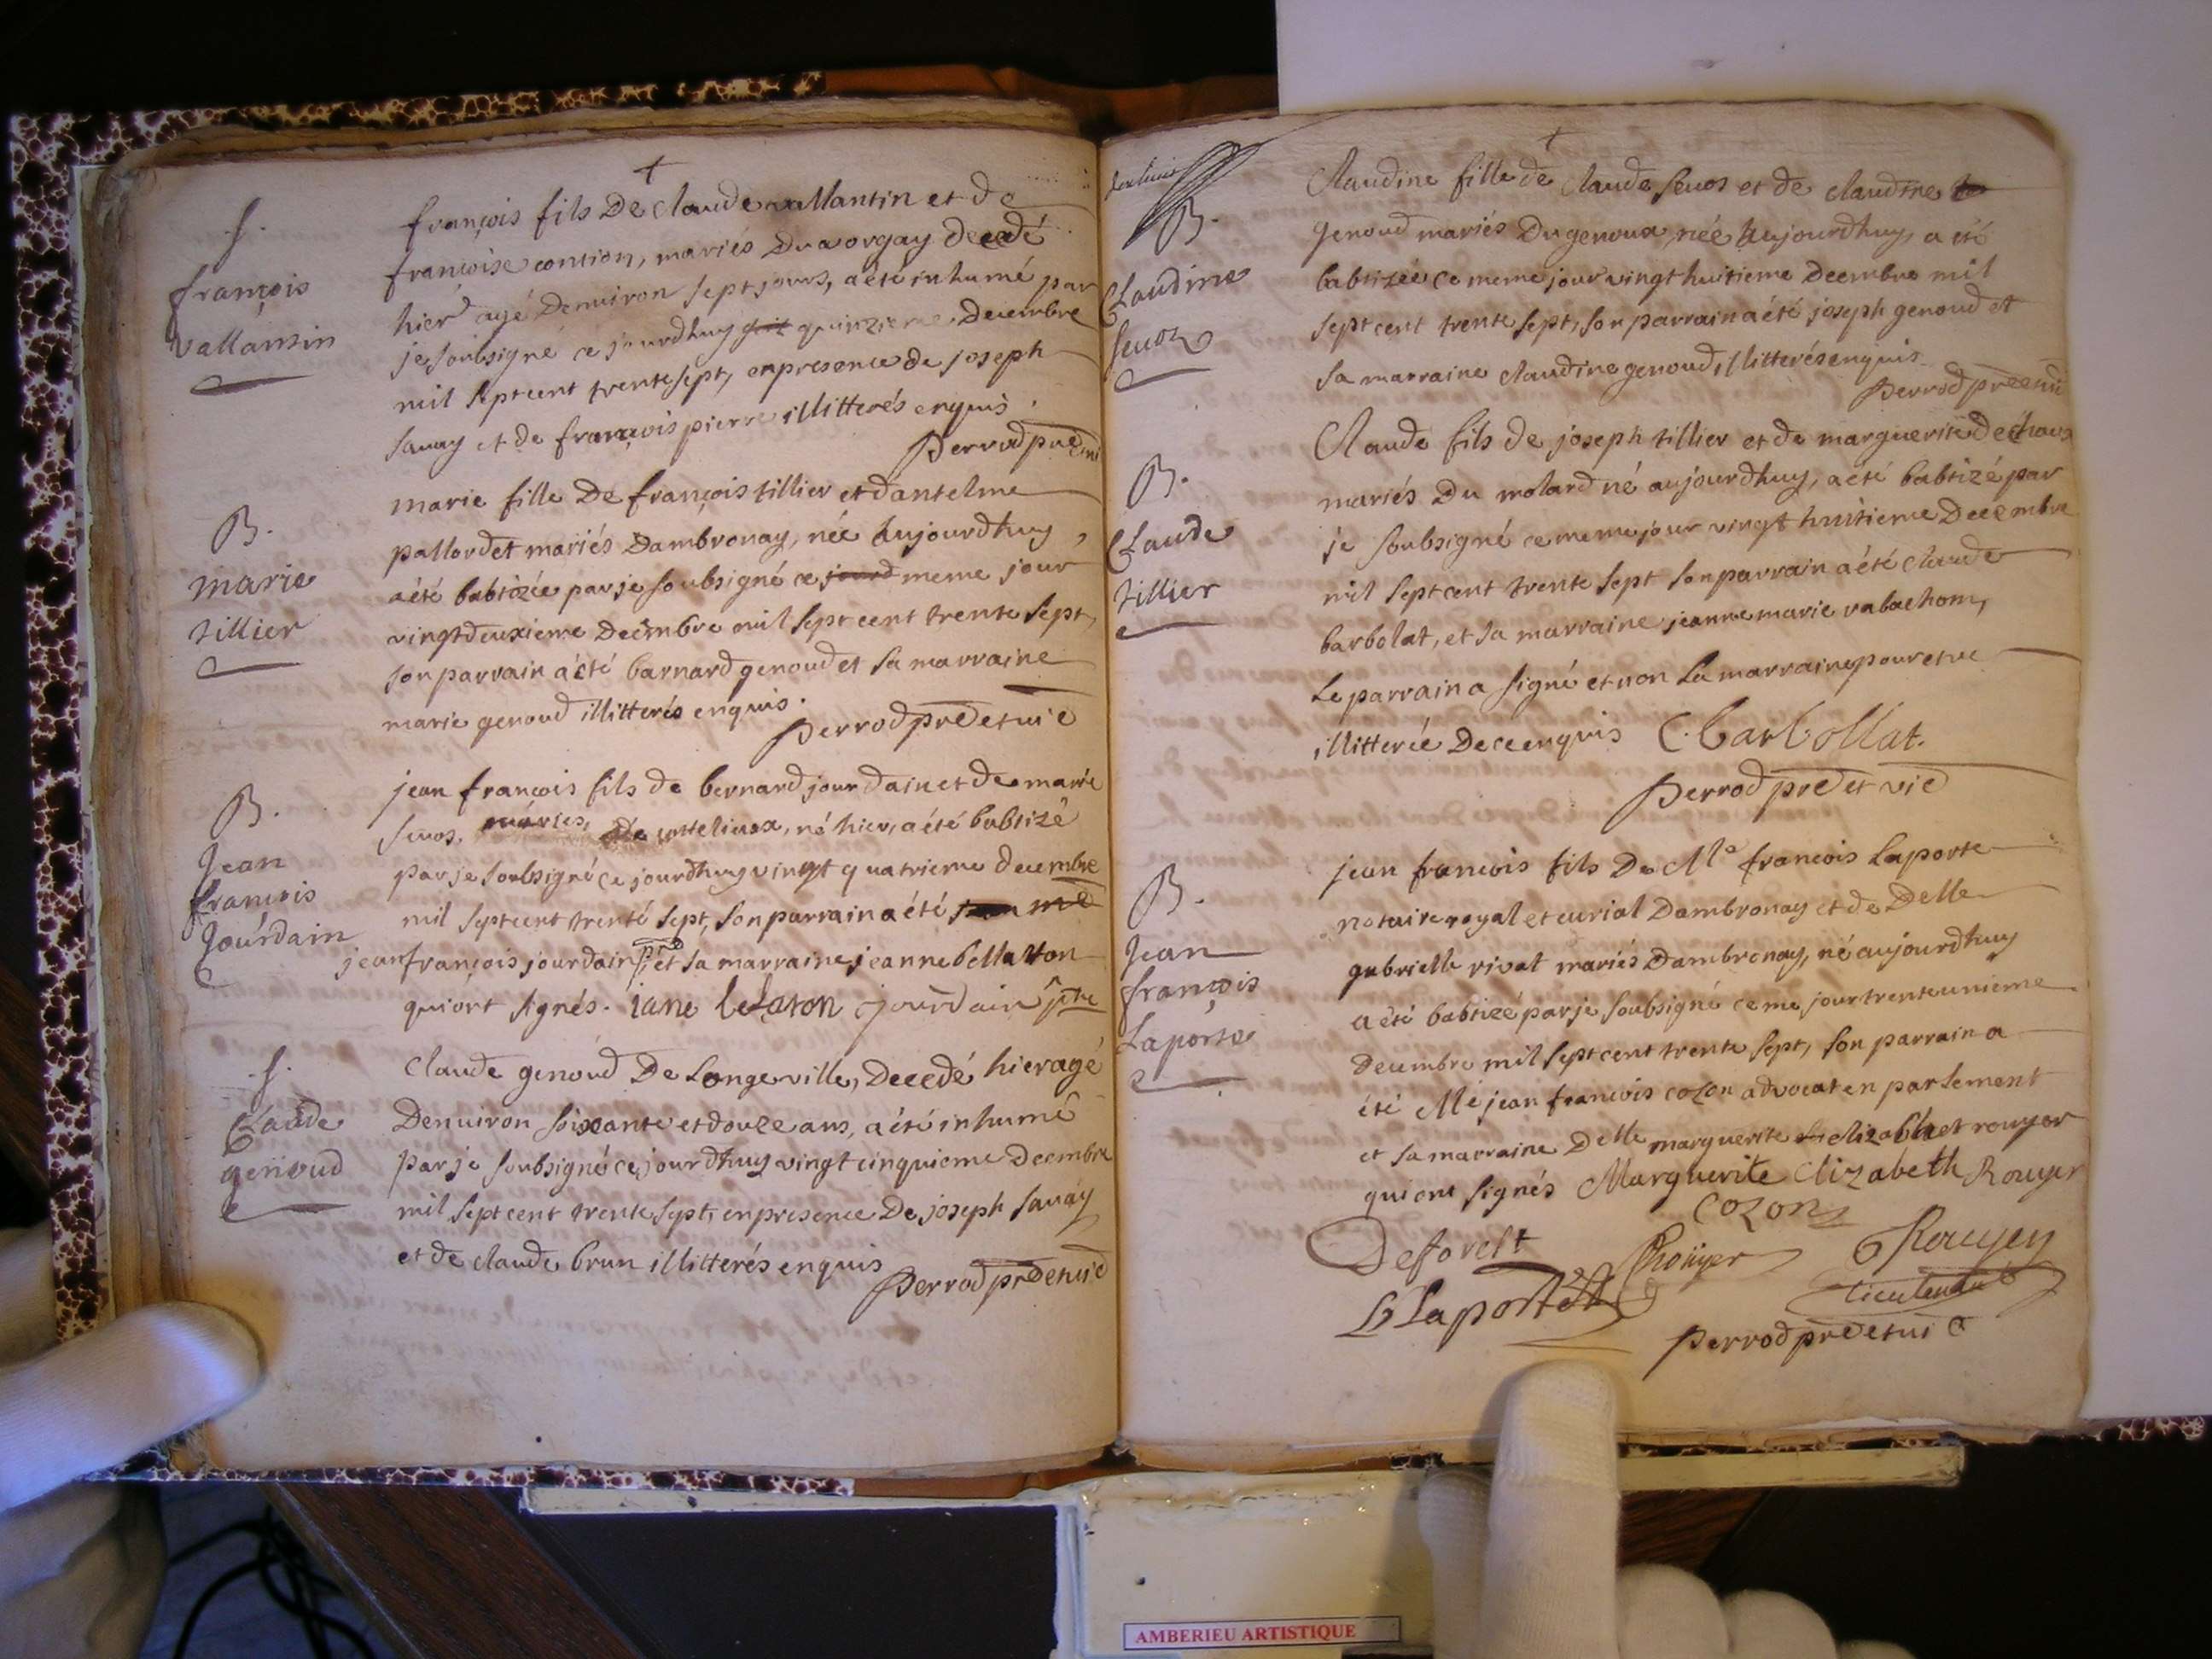 †
S.
françois
vallantin
françois fils De claude vallantin et de
françoise contion, mariés Du vorgay decedé
hier agé Denviron sept jours, a été inhumé par
je soubsigné ce jourdhuy quinzieme Decembre
mil sept cent trente sept, en presence de joseph
savay et de françois pierre illitterés enquis.
Perrod
B.
marie
tillier
marie fille De françois tillier et dantelme
pallordet mariés Dambronay, née aujourdhuy,
a été babtizée par je soubsigné ce jourd meme jour
vingtdeuxieme Decembre mil sept cent trente sept,
son parrain a été barnard genoud et sa marraine
marie genoud illitterés enquis.
Perrod pre et vic
B.
Jean
françois
Jourdain
jean françois fils de bernard jourdain et de marie
sevos, mariés, de cottelieux, né hier, a été babtizé
par je soubsigné ce jourdhuy vingt quatrieme decembre
mil sept cent trente sept, son parrain a été me
jean françois jourdain ptre, et sa marraine jeanne bellatton
qui ont signés. iane belaton jourdain ptre
S.
Claude
genoud
Claude genoud De Longeville, Decedé hier agé
Denviron soixante et douze ans, a été inhumé
par je soubsigné ce jourdhuy vingt cinquieme Decembre
mil sept cent trente sept, en presence De joseph savay
et de claude brun illitterés enquis
Perrod pre et vic
†
B.
Claudine
sevoz
Claudine fille de claude sevos et de claudine
genoud mariés Du genoux, née aujourdhuy, a été
babtizée ce meme jour vingt huitieme Decembre mil
sept cent trente sept, son parrain a été joseph genoud et
sa marraine claudine genoud, illitterés enquis
Perrod
B.
Claude
tillier
Claude fils de joseph tillier et de marguerite dechaux
mariés Du molard né aujourdhuy, a été babtizé par
je soubsigné ce meme jour vingt huitieme Decembre
mil sept cent trente sept son parrain a été claude
barbolat, et sa marraine jeanne marie rabachom,
Le parrain a signé et non La marraine pour etre
illitterée De ce enquis C. barbollat.
Perrod pre et vic
B.
Jean
françois
Laporte
jean françois fils De Me françois Laporte
notaire royal et curial Dambronay et de Delle
gabrielle rivat mariés Dambronay, né aujourdhuy
a été babtizé par je soubsigné ce me jour trente unieme
Decembre mil sept cent trente sept, son parrain a
été Me jean françois cozon advocat en parlement
et sa marraine Delle marguerite elizabhet rouyer
qui ont signés Marguerite Elizabeth Rouyer
cozon
Deforelt Rouyer Rouyer
Laporte lieutenant
Perrod pre et vic
AMBERIEU ARTISTIQUE